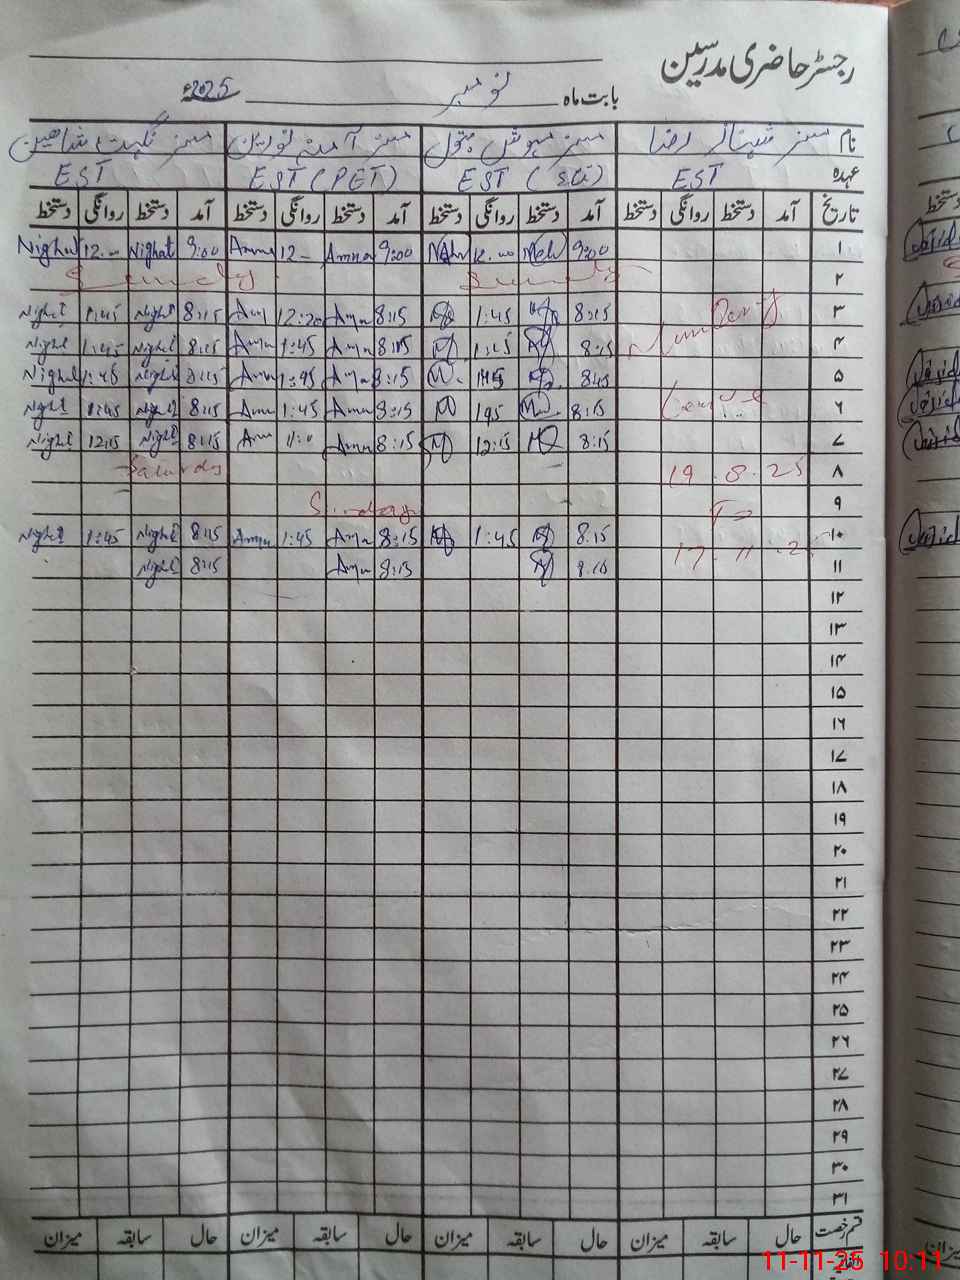 رجسٹر حاضری مدرسین
بابت ماہ نومبر 2025ء
نام مسز شہناز رضا مسز مہوش بتول مسز آمنہ نورین مسز نگہت شاہین
عہدہ EST EST (Sci) EST (PET) EST
تاریخ آمد دستخط روانگی دستخط آمد دستخط روانگی دستخط آمد دستخط روانگی دستخط آمد دستخط روانگی دستخط
۱ 9:00 12:00 9:00 Amna 12- Amna 9:00 Nighat 12:00 Nighat
۲ Sunday Sunday
۳ 8:15 1:45 8:15 Amna 12:20 Amn 8:15 Night 1:45 Night
۴ 8:15 1:45 8:15 Amna 1:45 Amna 8:15 Night 1:45 Night
۵ 8:15 1:45 8:15 Amna 1:45 Amna 8:15 Night 1:45 Nighat
۶ Leave 8:15 1:45 8:15 Amna 1:45 Amn 8:15 Night 1:45 Night
۷ 8:15 12:15 8:15 Amna Amn 8:15 Night 12:15 Night
۸ 19.8.25 Saturday
۹ To Sunday
۱۰ 8:15 1:45 8:15 Amna 1:45 Amna 8:15 Night 1:45 Night
۱۱ 8:15 Amna 8:15 Night
۱۲
۱۳
۱۴
۱۵
۱۶
۱۷
۱۸
۱۹
۲۰
۲۱
۲۲
۲۳
۲۴
۲۵
۲۶
۲۷
۲۸
۲۹
۳۰
۳۱
قسم رخصت حال سابقہ میزان حال سابقہ میزان حال سابقہ میزان حال سابقہ میزان
11-11-25 10:11